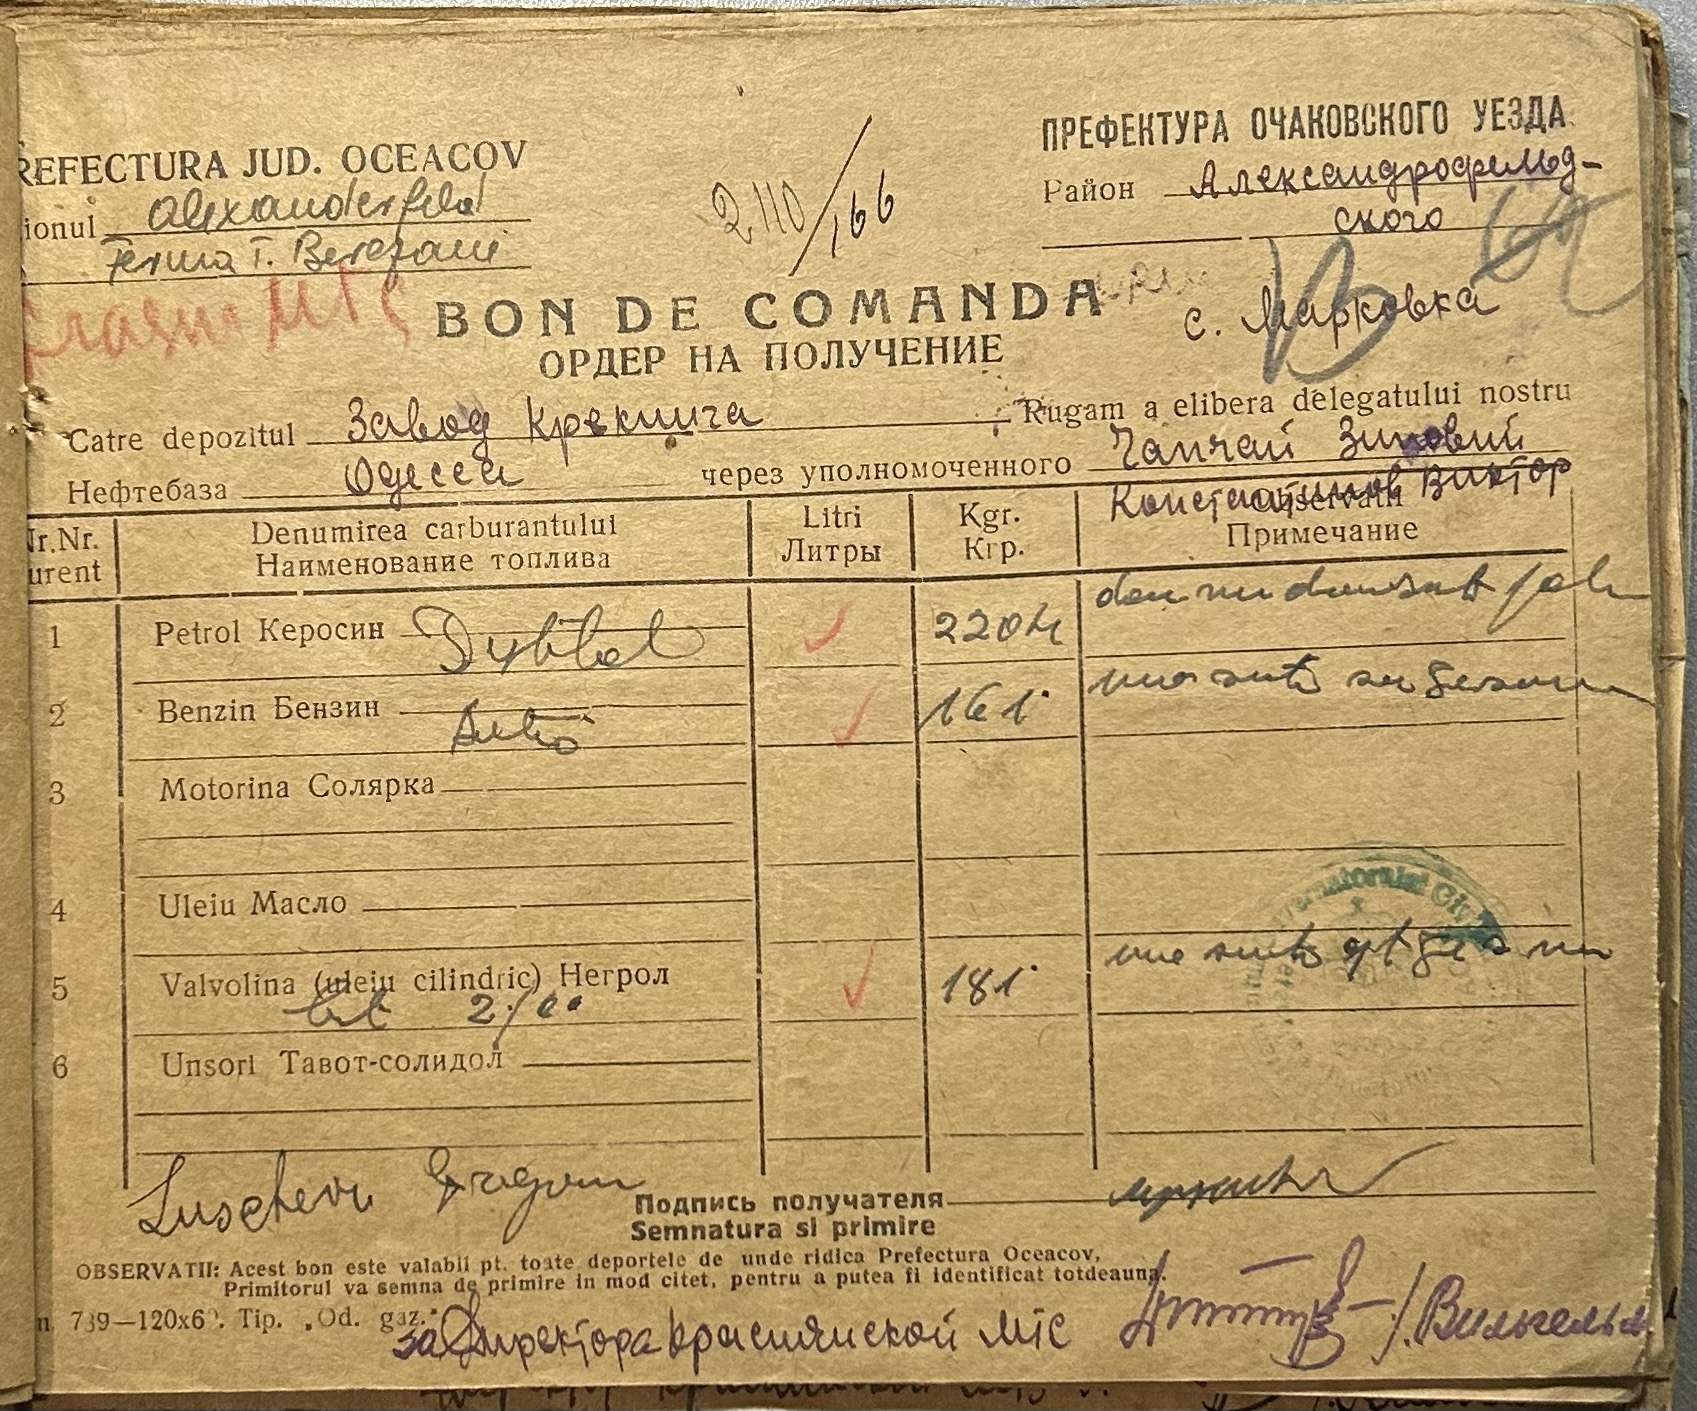 REFECTURA JUD. OCEACOV
ionul Alexanderfeld
Ferma T. Berezani
2110/166
ПРЕФЕКТУРА ОЧАКОВСКОГО УЕЗДА
Район Александрофельд-
ского
с. Марковка
BON DE COMANDA
ОРДЕР НА ПОЛУЧЕНИЕ
Catre depozitul Завод Крекинга Rugam a elibera delegatului nostru
Нефтебаза Одесса через уполномоченного Чапчай Зиновий
Константинов Виктор
Nr.Nr. Denumirea carburantului Litri Kgr. Observatii
urent Наименование топлива Литры Кгр. Примечание
1 Petrol Керосин 220
2 Benzin Бензин 161
una suta
3 Motorina Солярка
4 Uleiu Масло
5 Valvolina (uleiu cilindric) Негрол 181
una suta
6 Unsori Тавот-солидол
Подпись получателя
Semnatura si primire
OBSERVATII: Acest bon este valabil pt. toate deportele de unde ridica Prefectura Oceacov,
Primitorul va semna de primire in mod citet, pentru a putea fi identificat totdeauna.
739—120x6 . Tip. „Od. gaz."
за Директора Краснянской МТС /Вильгельм